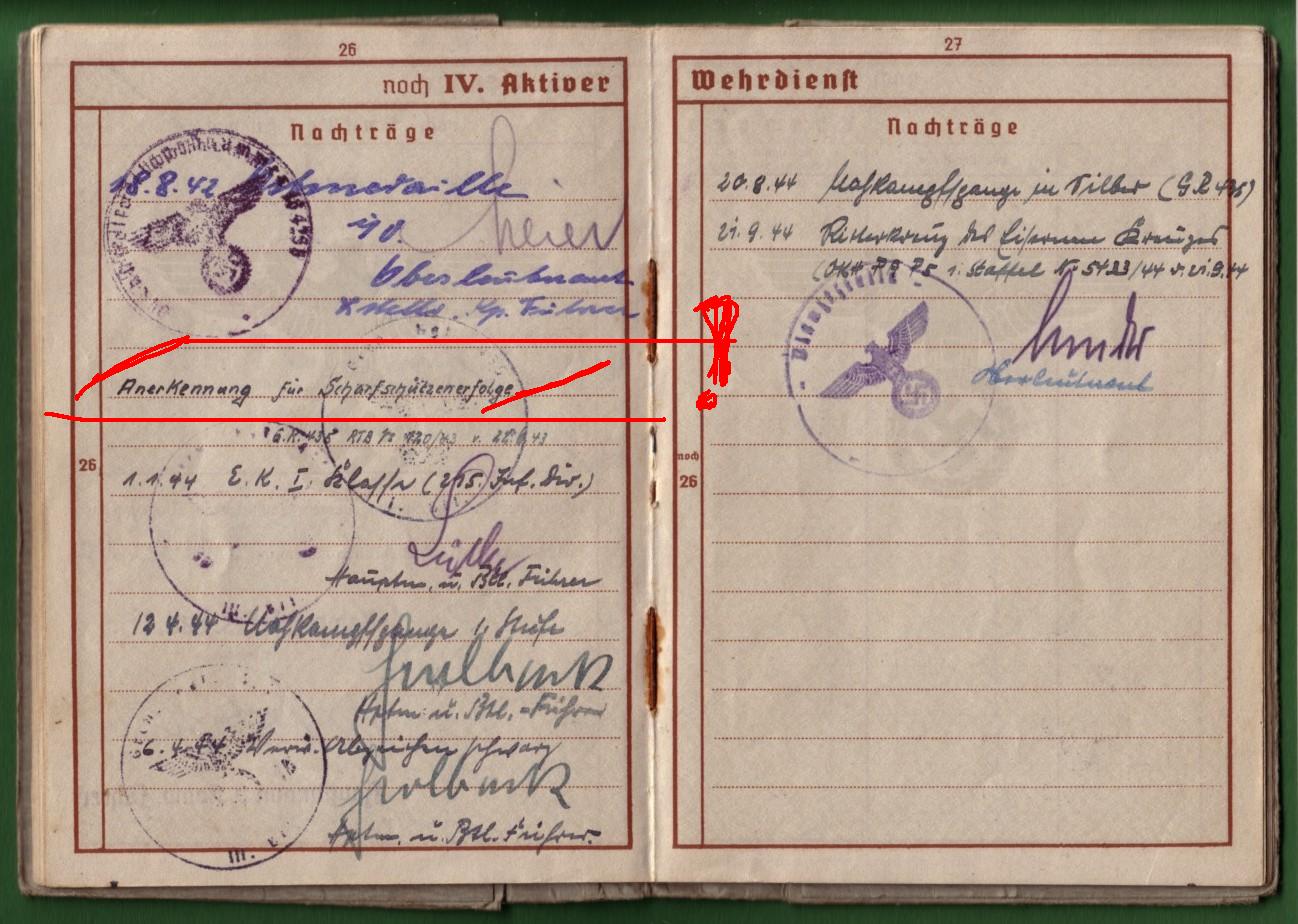 26
noch IV. Aktiver
Nachträge
18.8.42 Ostmedaille
Meier
Oberleutnant
u. stellv. Kp. Führer
Anerkennung für Scharfschützenerfolge
G.R. 435 RTB Nr 120/43 v.
26
1.1.44 E. K. I. Klasse (215. Inf. Div.)
Hauptm. u. Btl. Führer
12.4.44 Nahkampfspange 1. Stufe
Hptm. u. Btl.-Führer
6.4.44 Verw. Abzeichen schwarz
Hptm. u. Btl. Führer.
III.
27
Wehrdienst
Nachträge
20.8.44 Nahkampfspange in Silber (G.R. 435)
21.9.44 Ritterkreuz des Eisernen Kreuzes
(OKH PA P5 1. Staffel Nr 5133/44 v. 21.9.44
Oberleutnant
noch
26